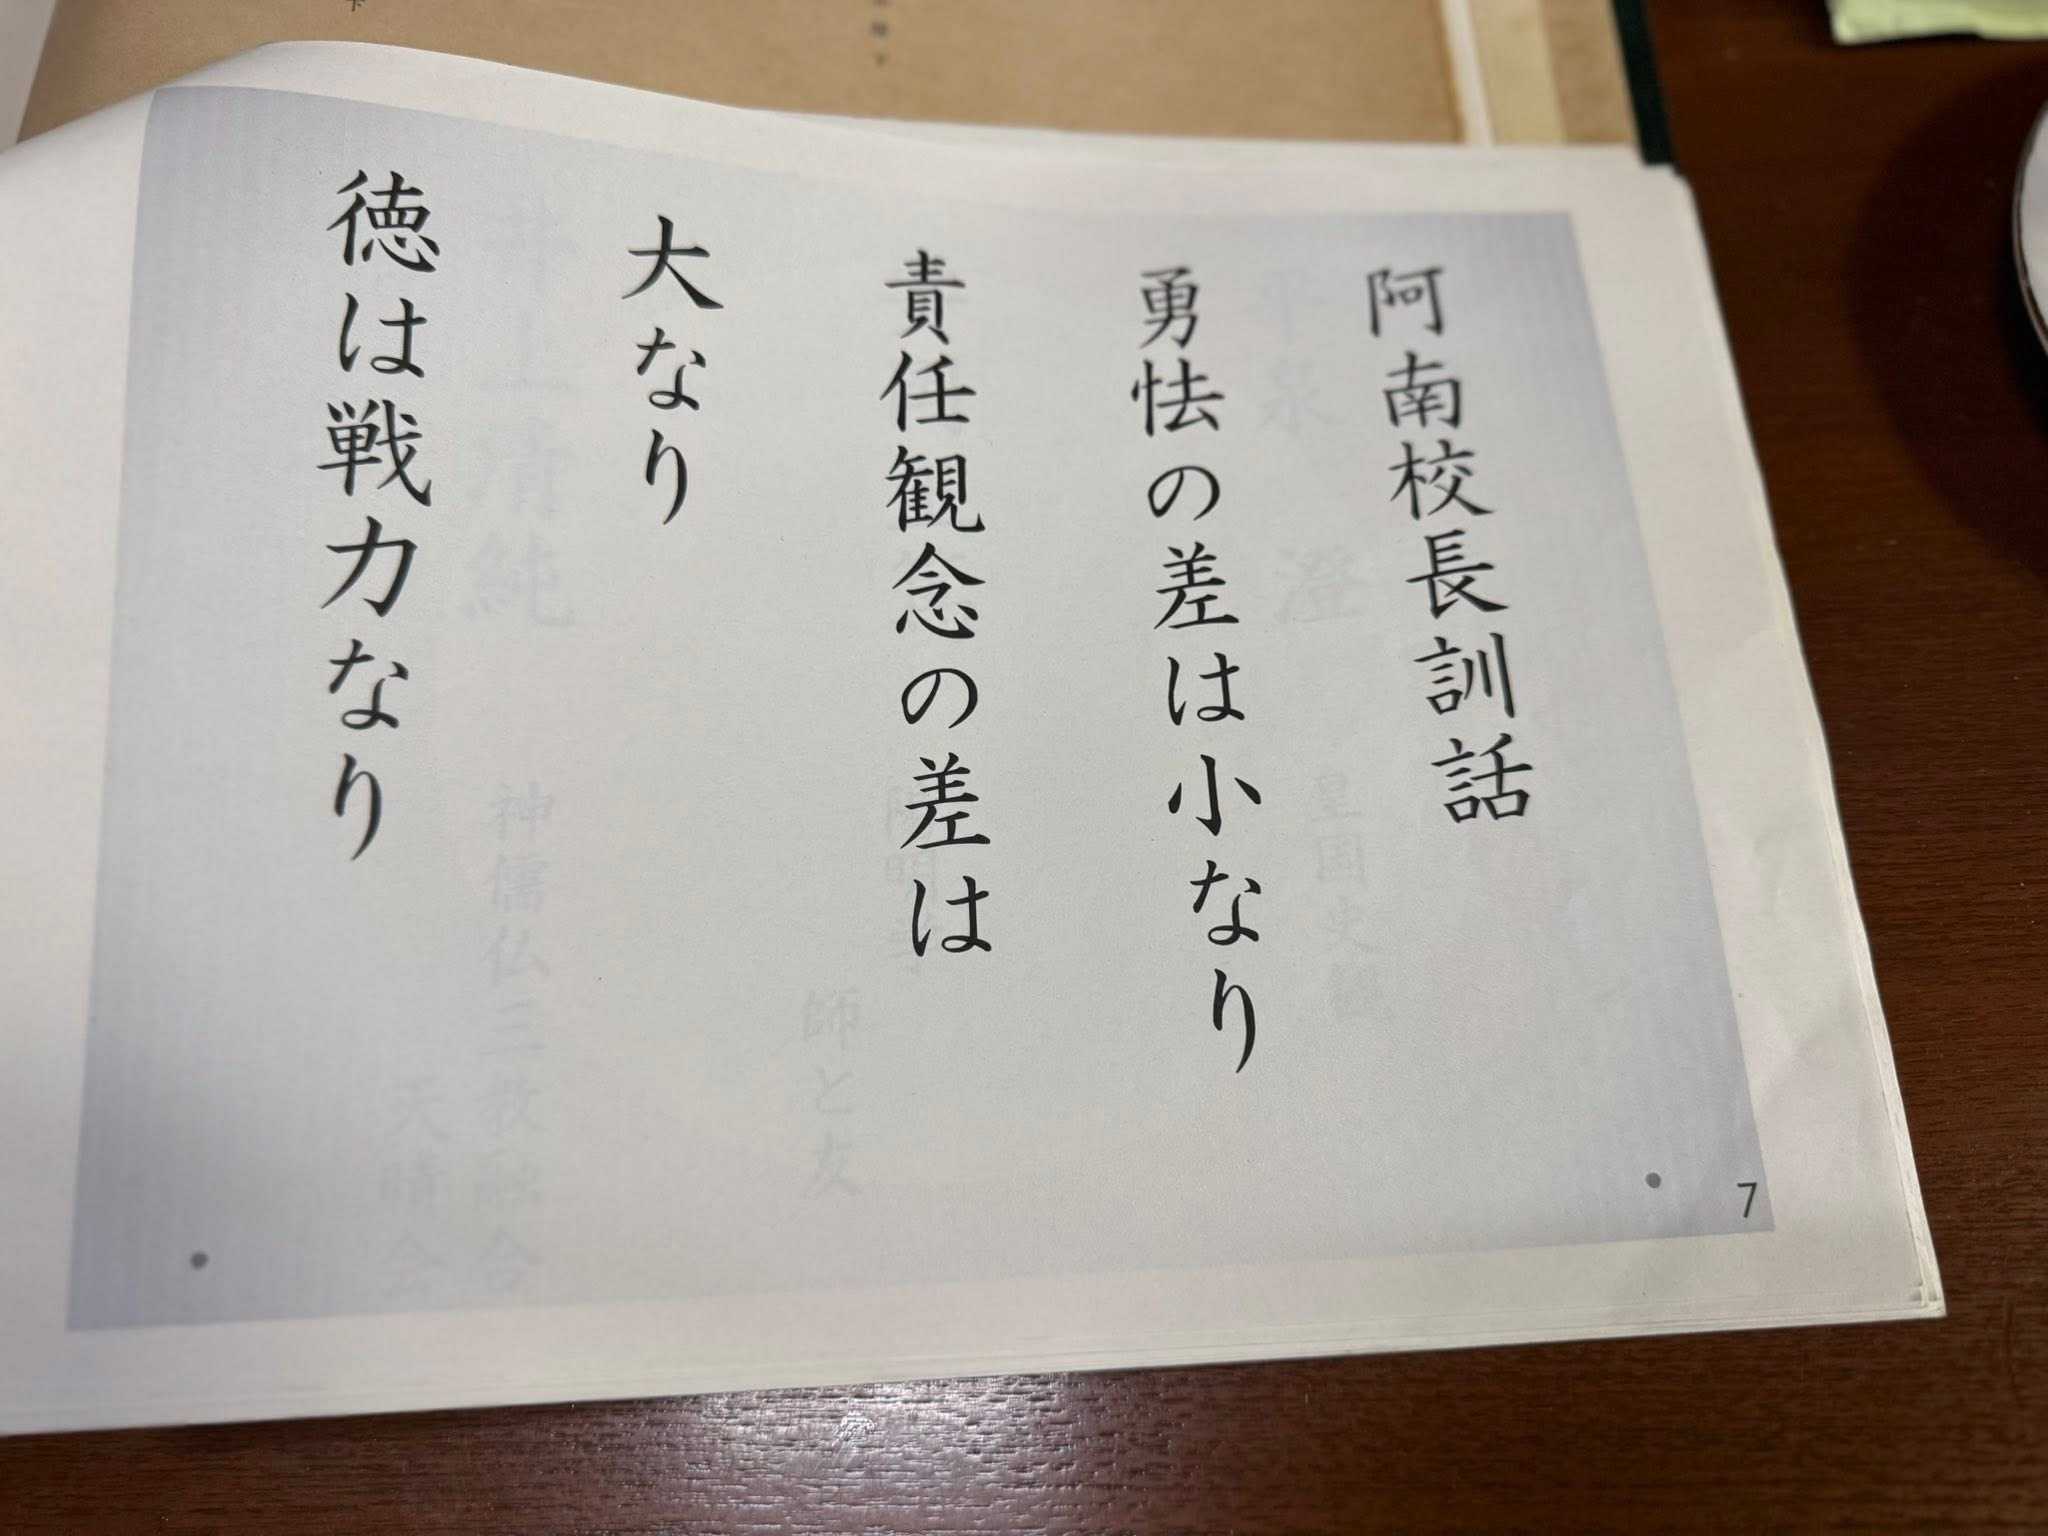 阿南校長訓話
勇怯の差は小なり
責任観念の差は
大なり
徳は戦力なり
7